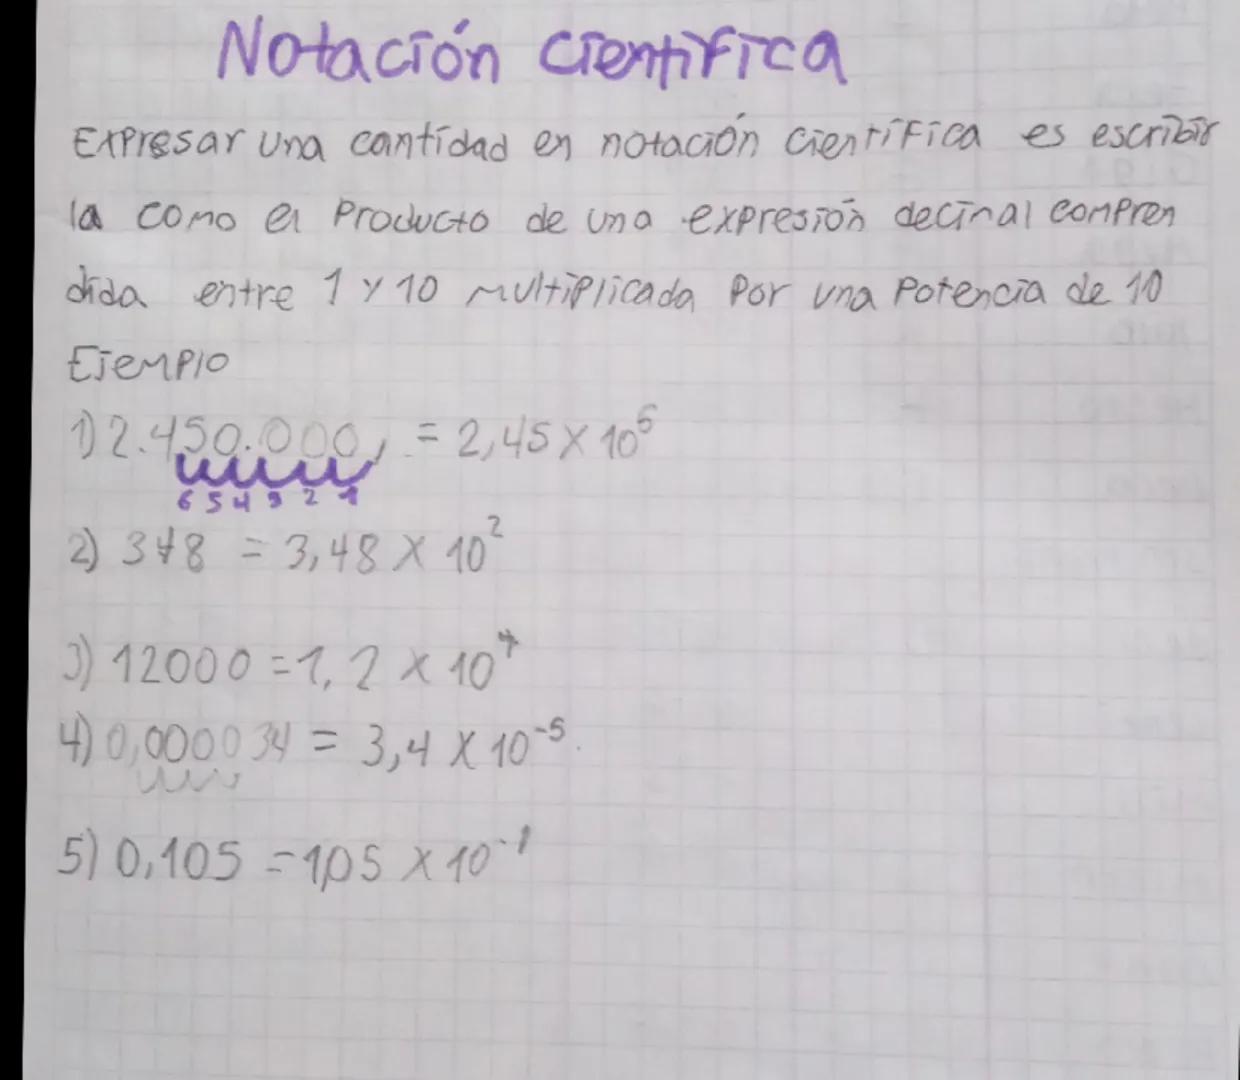 Notación cientifica
Expresar una cantidad en notación cientifica es escribir
la como el Producto de una expresión decimal compren
dida entre 1 y 10 multiplicada Por una Potencia de 10
Ejemplo
1) 2.450.000, = 2,45 x 10⁶
6 5 4 3 2 1
2) 348 = 3,48 x 10²
3) 12000 = 1,2 x 10⁴
4) 0,000034 = 3,4 x 10⁻⁵.
5) 0,105 = 1,05 x 10⁻¹